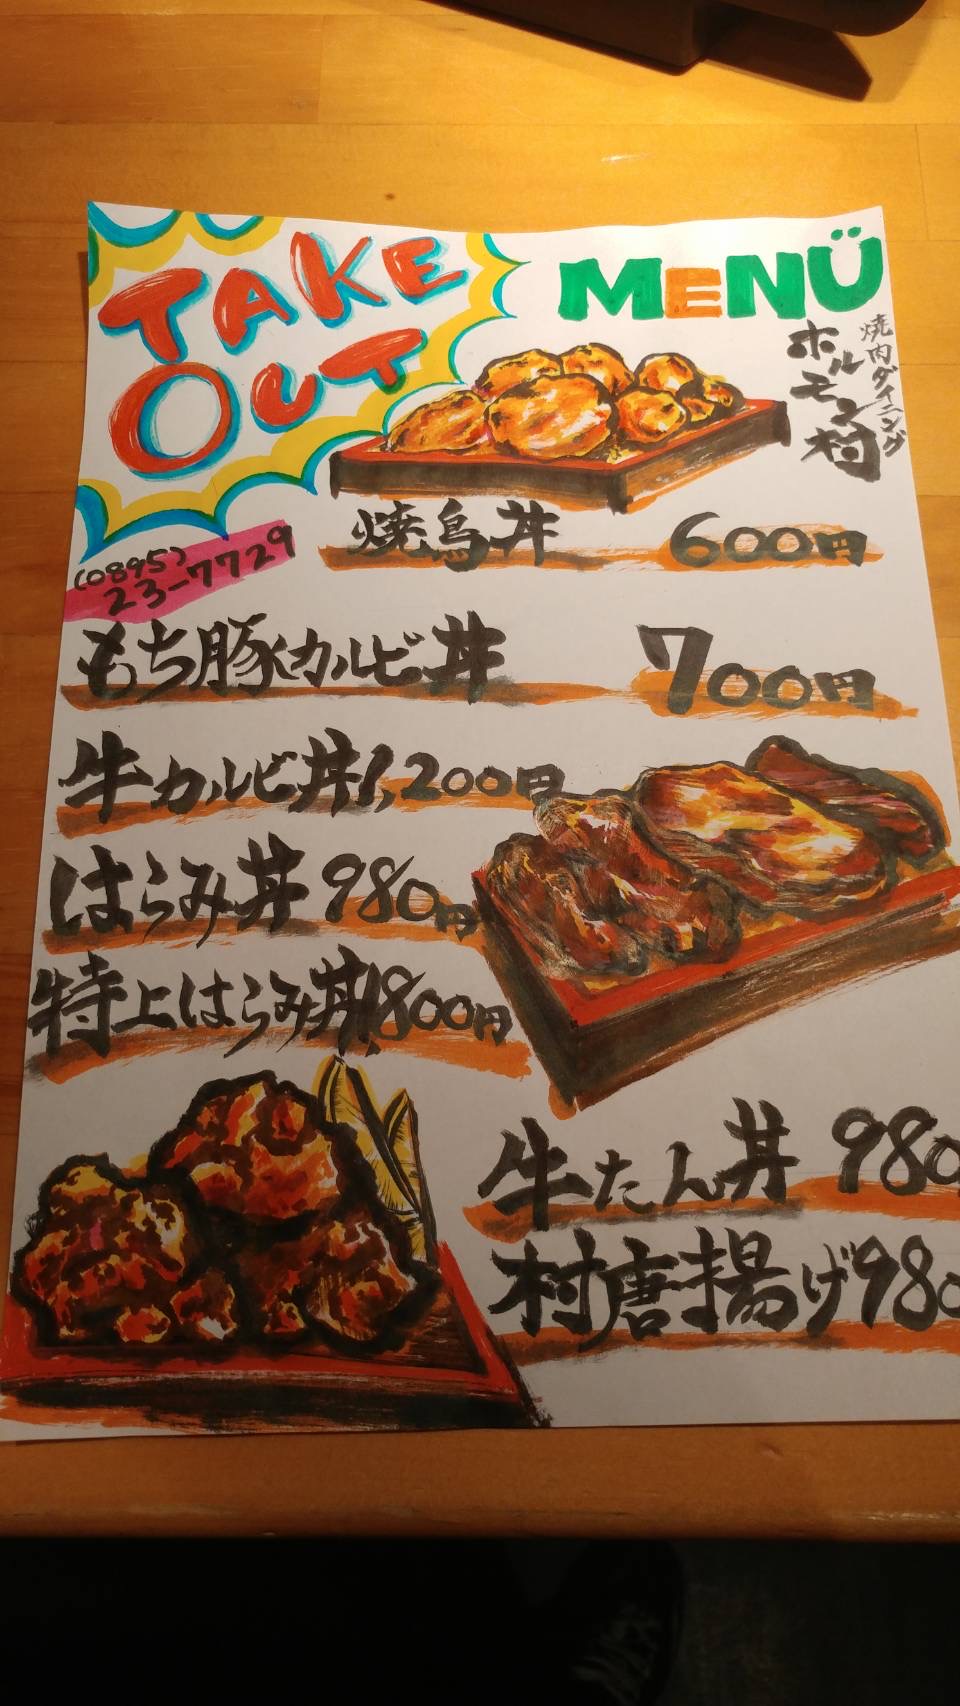 TAKE
OUT
MENÜ
焼肉ダイニング
ホルモン村
焼鳥丼 600円
(0895)
23-7729
もち豚カルビ丼 700円
牛カルビ丼1,200円
はらみ丼 980円
特上はらみ丼1,800円
牛たん丼 980
村唐揚げ980